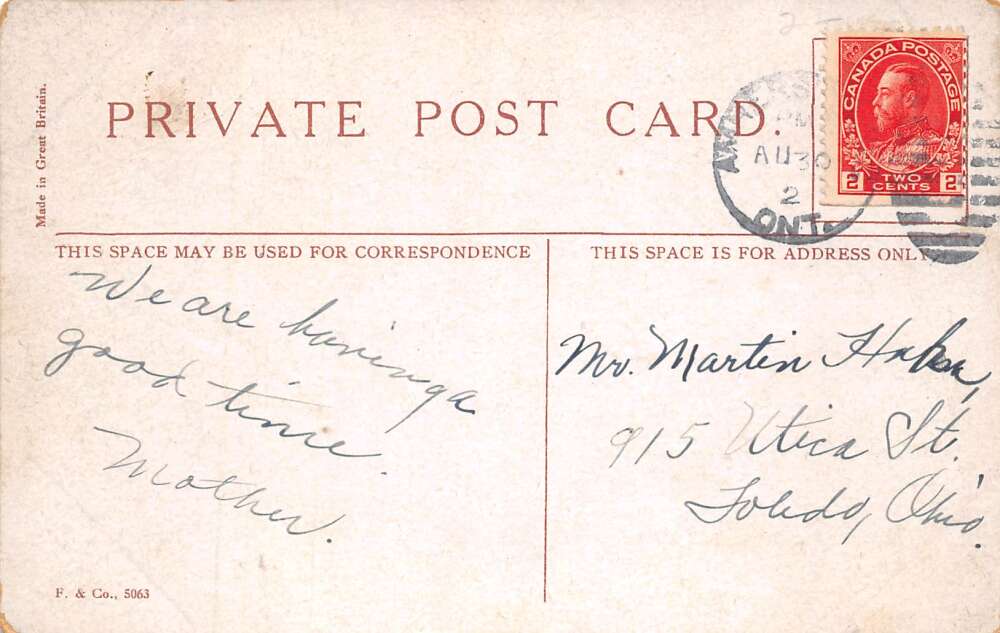 Made in Great Britain.
PRIVATE POST CARD.
CANADA POSTAGE
2 TWO CENTS 2
PM
AU 30
2
ONT.
THIS SPACE MAY BE USED FOR CORRESPONDENCE
We are having a
good time.
Mother.
THIS SPACE IS FOR ADDRESS ONLY
Mr. Martin
915 Utica St.
Toledo, Ohio.
F. & Co., 5063